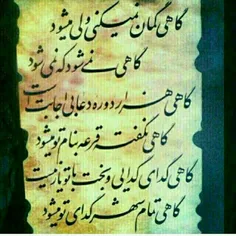 گاهی گمان نمیکنی ولی میشود
گاهی نمی شود که نمی شود
گاهی هزار دوره دعا بی اجابت است
گاهی نگفته قرعه بنام تو میشود
گاهی گدای گدایی و بخت با تو یار نیست
گاهی تمام شهر گدای تو میشود